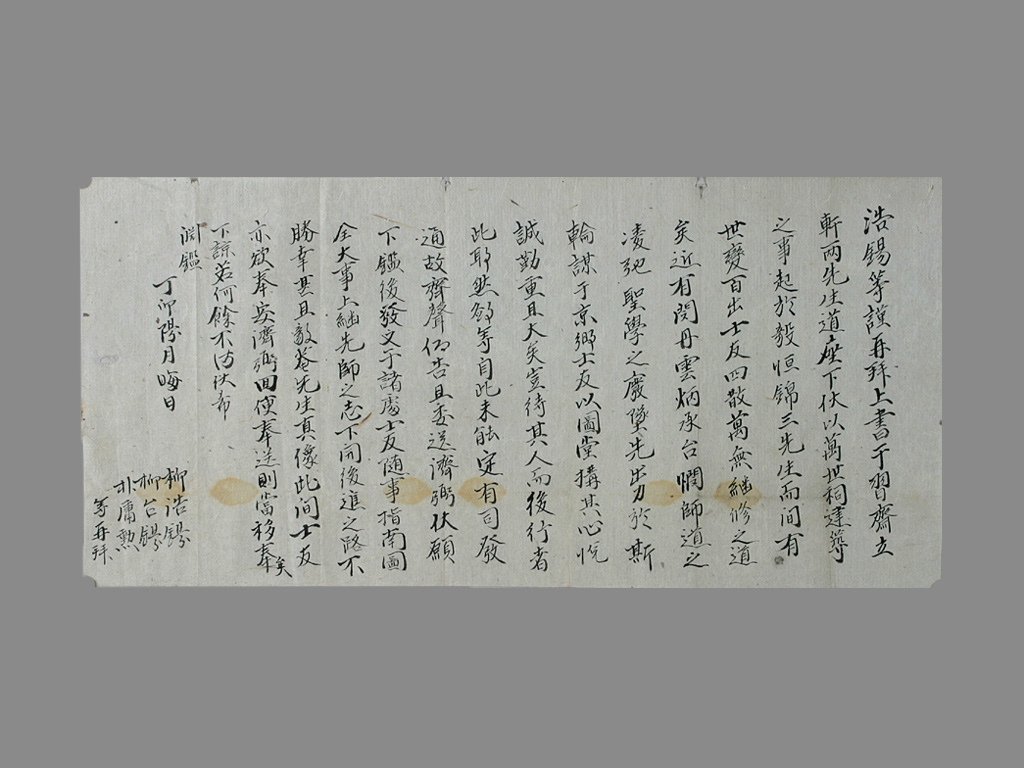 浩錫等謹再拜上書于習齋立
軒兩先生道座下伏以萬世祠建築
之事起於毅恒錦三先生而間有
世變百出士友四散萬無繼修之道
矣近有閔丹雲炳承台憫師道之
凌弛聖學之廢墜先出力於斯
輪謀于京鄉士友以圖堂搆其心悅
誠勤重且大矣豈待其人而後行者
此耶然錫等自此未能定有司發
通故齊聲仰告且委送濟弼伏願
下鑑後發文于諸處士友隨事指南圖
全大事上繼先師之志下開後進之路不
勝幸甚且毅菴先生真像此间士友
亦欲奉安濟弼回便奉送則當移奉矣
下諒若何餘不備伏希
淵鑑
丁卯陽月晦日
柳浩錫
柳台錫
庸勲
等再拜